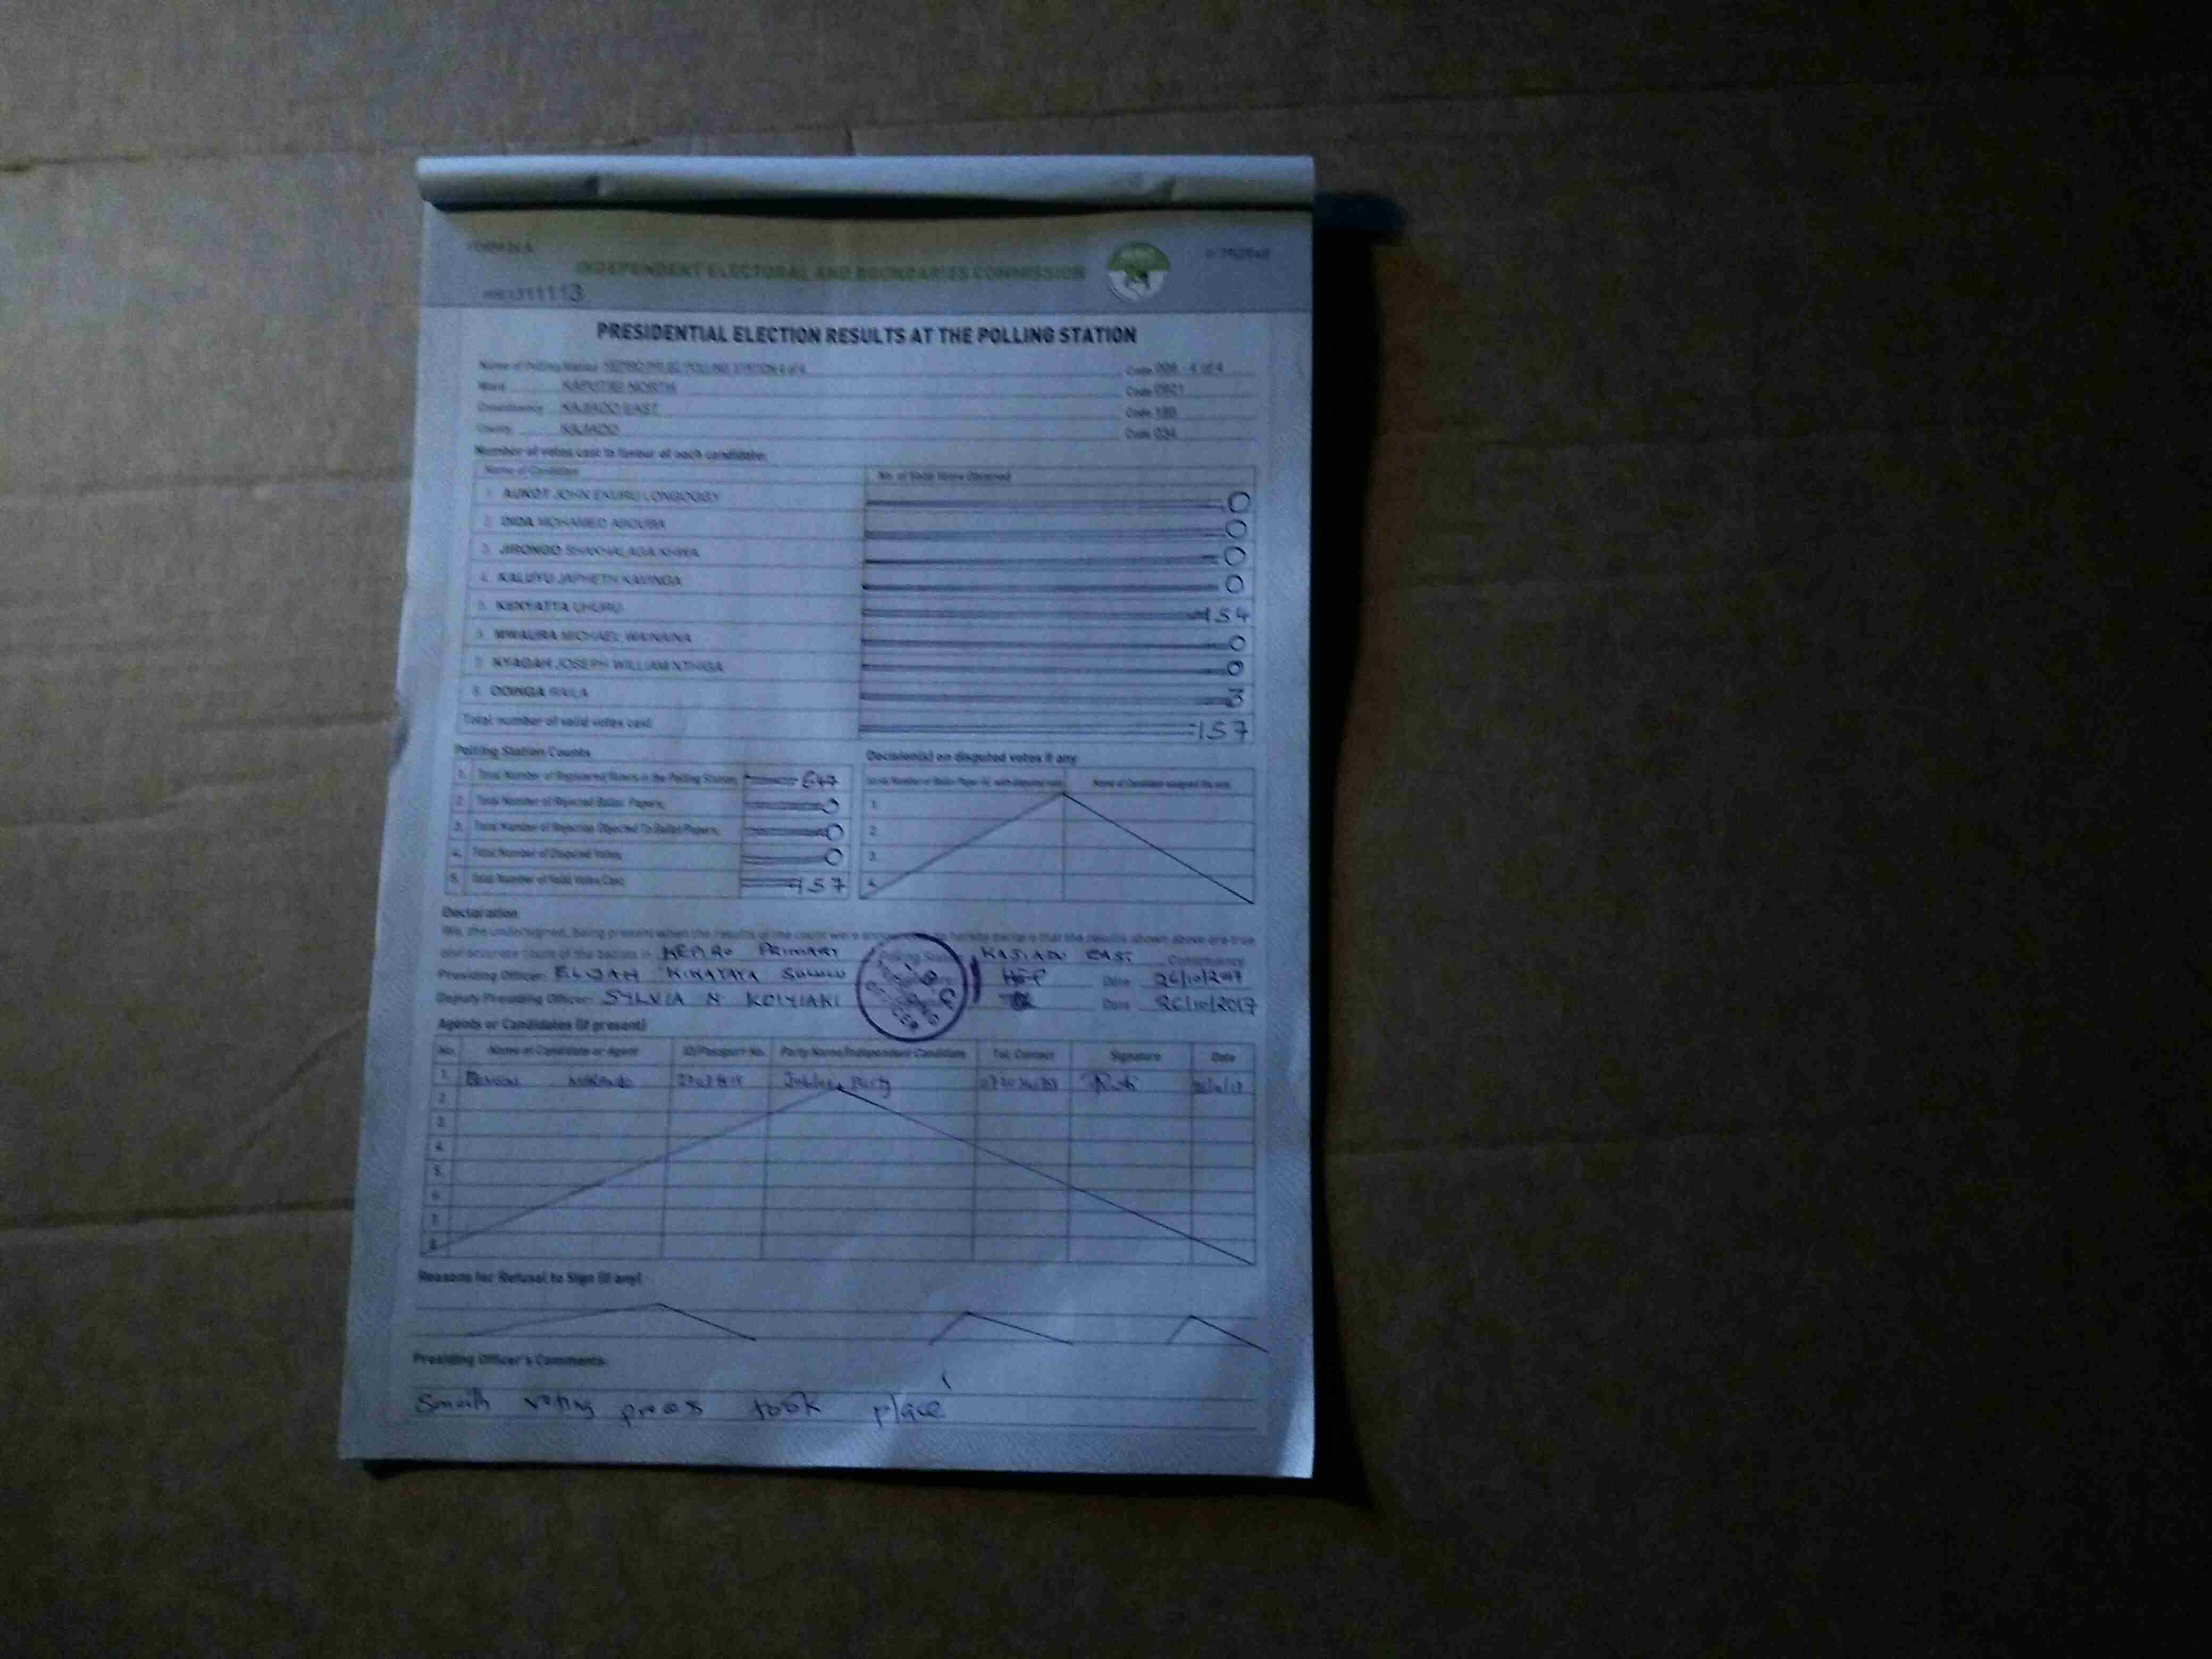 INDEPENDENT ELECTORAL AND BOUNDARIES COMMISSION
PRESIDENTIAL ELECTION RESULTS AT THE POLLING STATION
Name of Polling Station POLLING STATION 4 of 4 Code 009 - 4 of 4
Ward KAPUTIEI NORTH Code 0921
Constituency KAJIADO EAST Code
County KAJIADO Code 034
Number of votes cast in favour of each candidate:
Name of Candidate No. of Valid Votes Obtained
1. AUKOT JOHN EKURU LONGOGGY 0
2. DIDA MOHAMED ABDUBA 0
3. JIRONGO SHAKHALAGA KHWA 0
4. KALUYU JAPHETH KAVINGA 0
5. KENYATTA UHURU 154
6. MWAURA MICHAEL WAINAINA 0
7. NYAGAH JOSEPH WILLIAM NTHIGA 0
8. ODINGA RAILA 3
Total number of valid votes cast 157
Polling Station Counts
1. Total Number of Registered Voters in the Polling Station 647
2. Total Number of Rejected Ballot Papers 0
3. Total Number of Rejection Objected To Ballot Papers 0
4. Total Number of Disputed Votes 0
5. Total Number of Valid Votes Cast 157
Decision(s) on disputed votes if any
Serial Number of Ballot Paper (s) with disputed vote Name of Candidate assigned the vote
1.
2.
3.
4.
Declaration
We, the undersigned, being present when the results of the count were announced, do hereby declare that the results shown above are true
and accurate count of the ballots in PRIMARY Polling Station KAJIADO EAST Constituency
Presiding Officer: ELIJAH Date 26/10/2017
Deputy Presiding Officer: SYLVIA N KOIYIAKI Date 26/10/2017
Agents or Candidates (if present)
No. Name of Candidate or Agent ID/Passport No. Party Name/Independent Candidate Tel. Contact Signature Date
1. Jubilee Party
2.
3.
4.
5.
6.
7.
8.
Reasons for Refusal to Sign (if any)
Presiding Officer's Comments:
Smooth voting took place